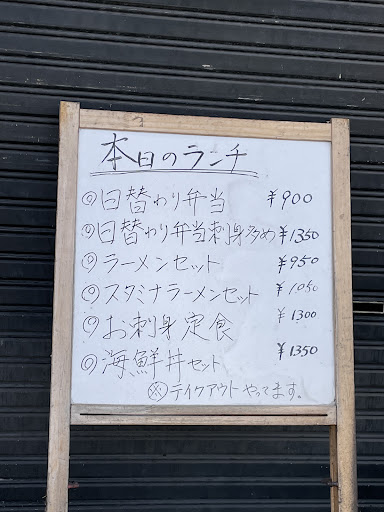 本日のランチ
◎日替わり弁当 ¥900
◎日替わり弁当刺身多め ¥1350
◎ラーメンセット ¥950
◎スタミナラーメンセット ¥1050
◎お刺身定食 ¥1300
◎海鮮丼セット ¥1350
※テイクアウトやってます。